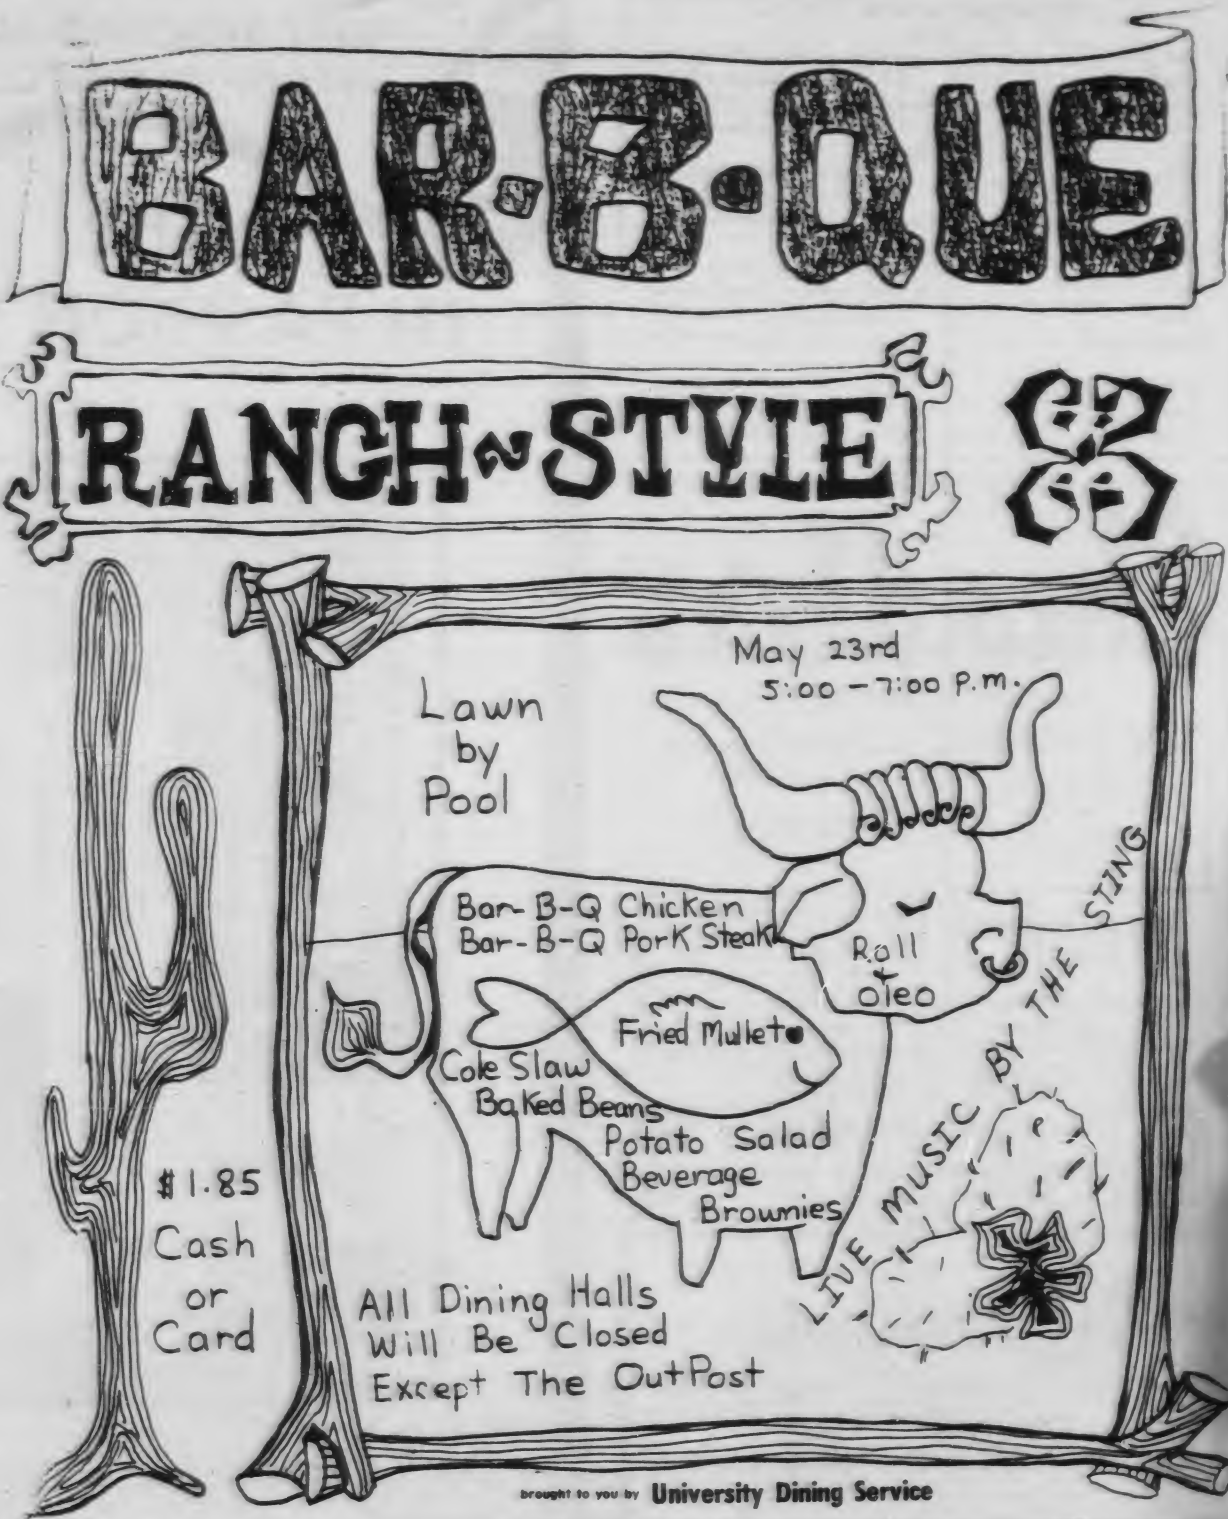 BAR-B-QUE
RANCH~STYLE
May 23rd
5:00 - 7:00 P.m.
Lawn
by
Pool
Bar-B-Q Chicken
Bar-B-Q Pork Steak
Roll
+
oleo
Fried Mullet
Cole Slaw
Baked Beans
Potato Salad
Beverage
Brownies
LIVE MUSIC BY THE STING
$1.85
Cash
or
Card
All Dining Halls
Will Be Closed
Except The OutPost
brought to you by University Dining Service